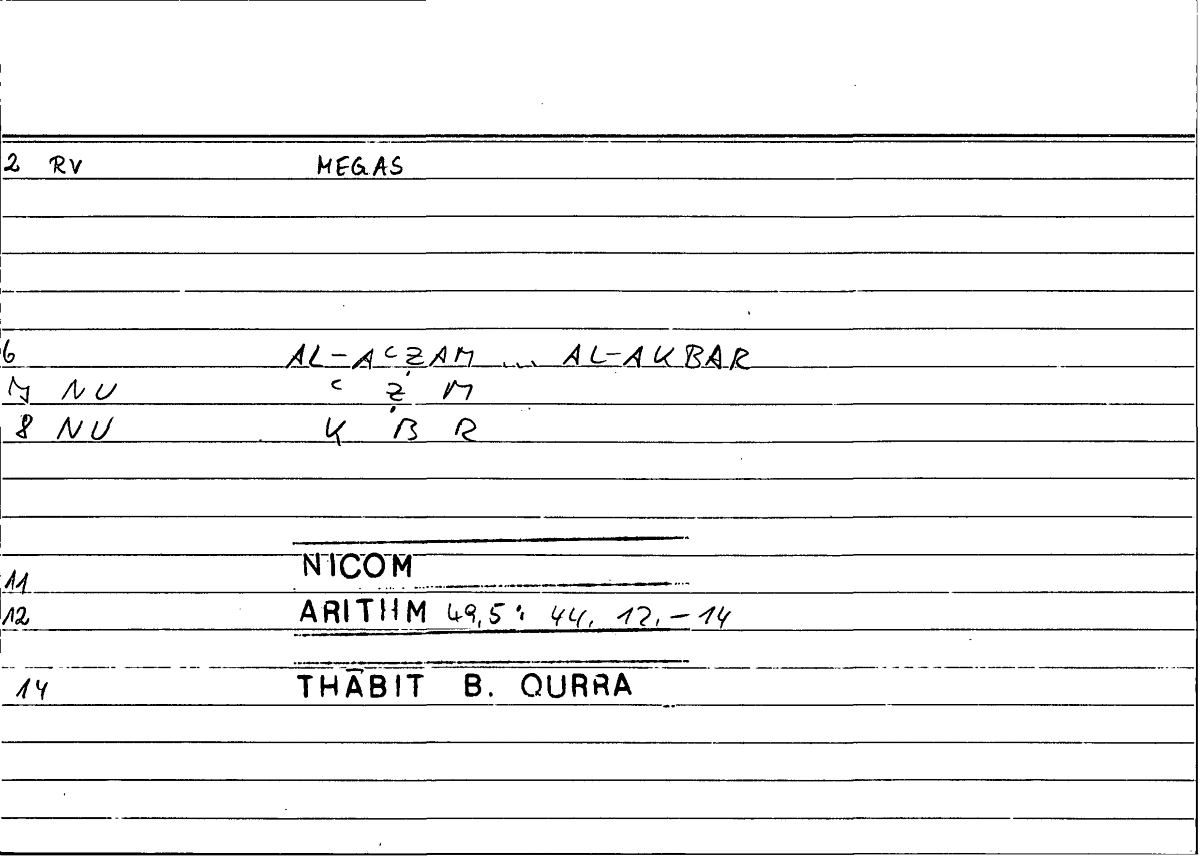 2 RV MEGAS
6 AL-AʿẒAM ... AL-AKBAR
7 NU ʿ Ẓ M
8 NU K B R
11 NICOM
12 ARITHM 49,5: 44, 12,-14
14 THĀBIT B. QURRA